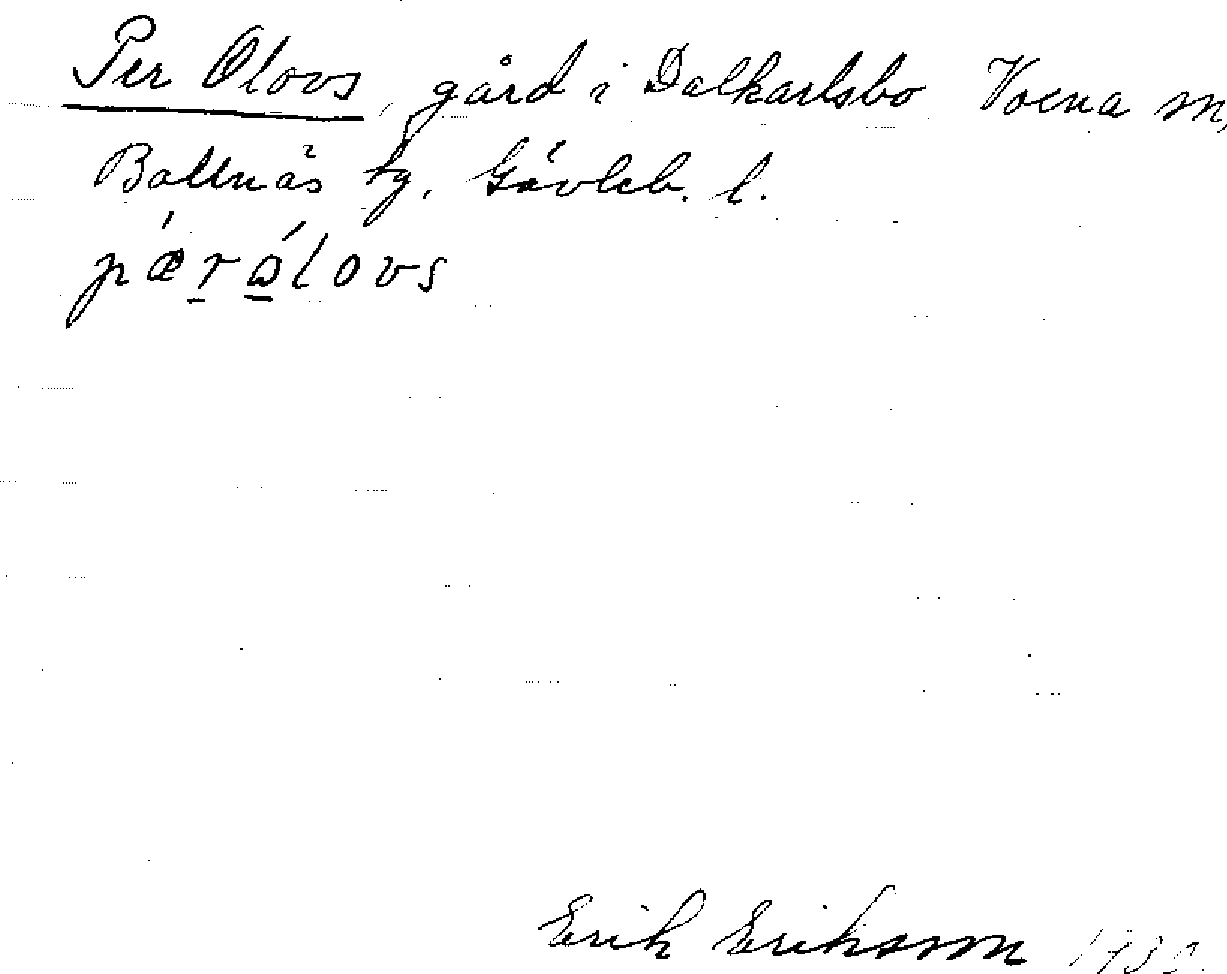 Per Olovs, gård i Dalkarlsbo Voxna sn,
Bollnäs tg. Gävleb. l.
pǽrålovs
Erik Eriksson